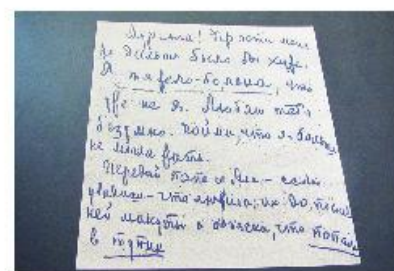 Мурлыга! Прости меня,
но дальше было бы хуже.
Я тяжело больна, это
уже не я. Люблю тебя
безумно. Пойми, что я больше
не могла жить.
Передай папе и Але — если
увидишь — что любила их до послед
ней минуты и объясни, что попала
в тупик